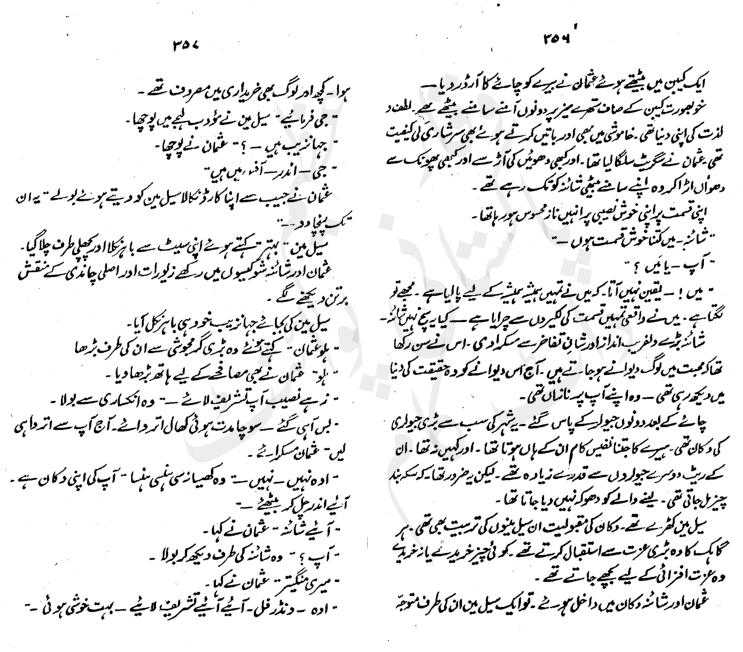 ۳۵۶
ایک کیبن میں بیٹھتے ہوئے عثمان نے بیرے کو چائے کا آرڈر دیا —
خوبصورت کیبن کے صاف ستھرے میز پر دونوں آمنے سامنے بیٹھے تھے۔ لطف و
لذت کی اپنی دنیا تھی۔ خاموشی میں بھی اور باتیں کرتے ہوئے بھی سرشاری کی کیفیت
تھی عثمان نے سگریٹ سلگا لیا تھا۔ اور کبھی دھوئیں کی آڑ سے اور کبھی پھونک سے
دھواں اڑا کر وہ اپنے سامنے بیٹھی شائنہ کو تک رہے تھے۔
اپنی قسمت پر اپنی خوش نصیبی پر انہیں ناز محسوس ہو رہا تھا۔
"شائنہ۔ میں کتنا خوش قسمت ہوں —"
"آپ۔ یا میں ؟"
"میں !۔ یقین نہیں آتا۔ کہ میں نے تمہیں ہمیشہ ہمیشہ کے لیے پا لیا ہے۔ مجھے تو
لگتا ہے۔ میں نے واقعی تمہیں قسمت کی لکیروں سے چرایا ہے۔ کیا یہ سچ نہیں شائنہ۔"
شائنہ بڑے دلفریب انداز اور شانِ تفاخر سے مسکرا دی۔ اس نے سن رکھا
تھا کہ محبت میں لوگ دیوانے ہو جاتے ہیں۔ آج اس دیوانے کو وہ حقیقت کی دنیا
میں دیکھ رہی تھی — وہ اپنے آپ پر نازاں تھی۔
چائے کے بعد دونوں جیولر کے پاس گئے۔ یہ شہر کی سب سے بڑی جیولری
کی دکان تھی۔ ہیرے کا جتنا نفیس کام ان کے ہاں ہوتا تھا۔ اور کہیں نہ تھا۔ ان
کے ریٹ دوسرے جیولروں سے قدرے زیادہ تھے۔ لیکن یہ ضرور تھا۔ کہ سکہ بند
چیز مل جاتی تھی۔ لینے والے کو دھوکہ نہیں دیا جاتا تھا۔
سیل مین کھڑے تھے۔ دکان کی مقبولیت ان سیل مینوں کی تربیت بھی تھی۔ ہر
گاہک کا وہ بڑی عزت سے استقبال کرتے تھے۔ کوئی چیز خریدے یا نہ خریدے
وہ عزت افزائی کے لیے بچھے جاتے تھے۔
عثمان اور شائنہ دکان میں داخل ہوئے۔ تو ایک سیل مین ان کی طرف متوجہ
۳۵۷
ہوا۔ کچھ اور لوگ بھی خریداری میں مصروف تھے۔
"جی فرمائیے" سیل مین نے مؤدب لہجے میں پوچھا۔
"جہانزیب ہیں — ؟" عثمان نے پوچھا۔
"جی — اندر۔ آفس میں ہیں"
عثمان نے جیب سے اپنا کارڈ نکالا سیل مین کو دیتے ہوئے بولے "یہ ان
تک پہنچا دو —"
سیل مین "بہتر" کہتے ہوئے اپنی سیٹ سے باہر نکلا اور پچھلی طرف چلا گیا۔
عثمان اور شائنہ شوکیسوں میں رکھے زیورات اور اصلی چاندی کے نقش
برتن دیکھنے لگے۔
سیل مین کی بجائے جہانزیب خود ہی باہر نکل آیا۔
"ہلو عثمان" کہتے ہوئے وہ بڑی گرمجوشی سے ان کی طرف بڑھا
"ہلو" عثمان نے بھی مصافحے کے لیے ہاتھ بڑھا دیا۔
"زہے نصیب آپ تشریف لائے —" وہ انکساری سے بولا۔
"بس آ ہی گئے — سوچا مدت ہوئی کھال اتروائے۔ آج آپ سے اتروا ہی
لیں" عثمان مسکرائے۔
"اوہ نہیں — نہیں —" وہ کھسیانی سی ہنسی ہنسا "آپ کی اپنی دکان ہے۔
آئیے اندر چل کر بیٹھئے —"
"آئیے شائنہ" عثمان نے کہا۔
"آپ ؟" وہ شائنہ کی طرف دیکھ کر بولا۔
"میری منگیتر" عثمان نے کہا۔
"اوہ — ونڈر فل۔ آئیے آئیے تشریف لائیے — بہت خوشی ہوئی —"